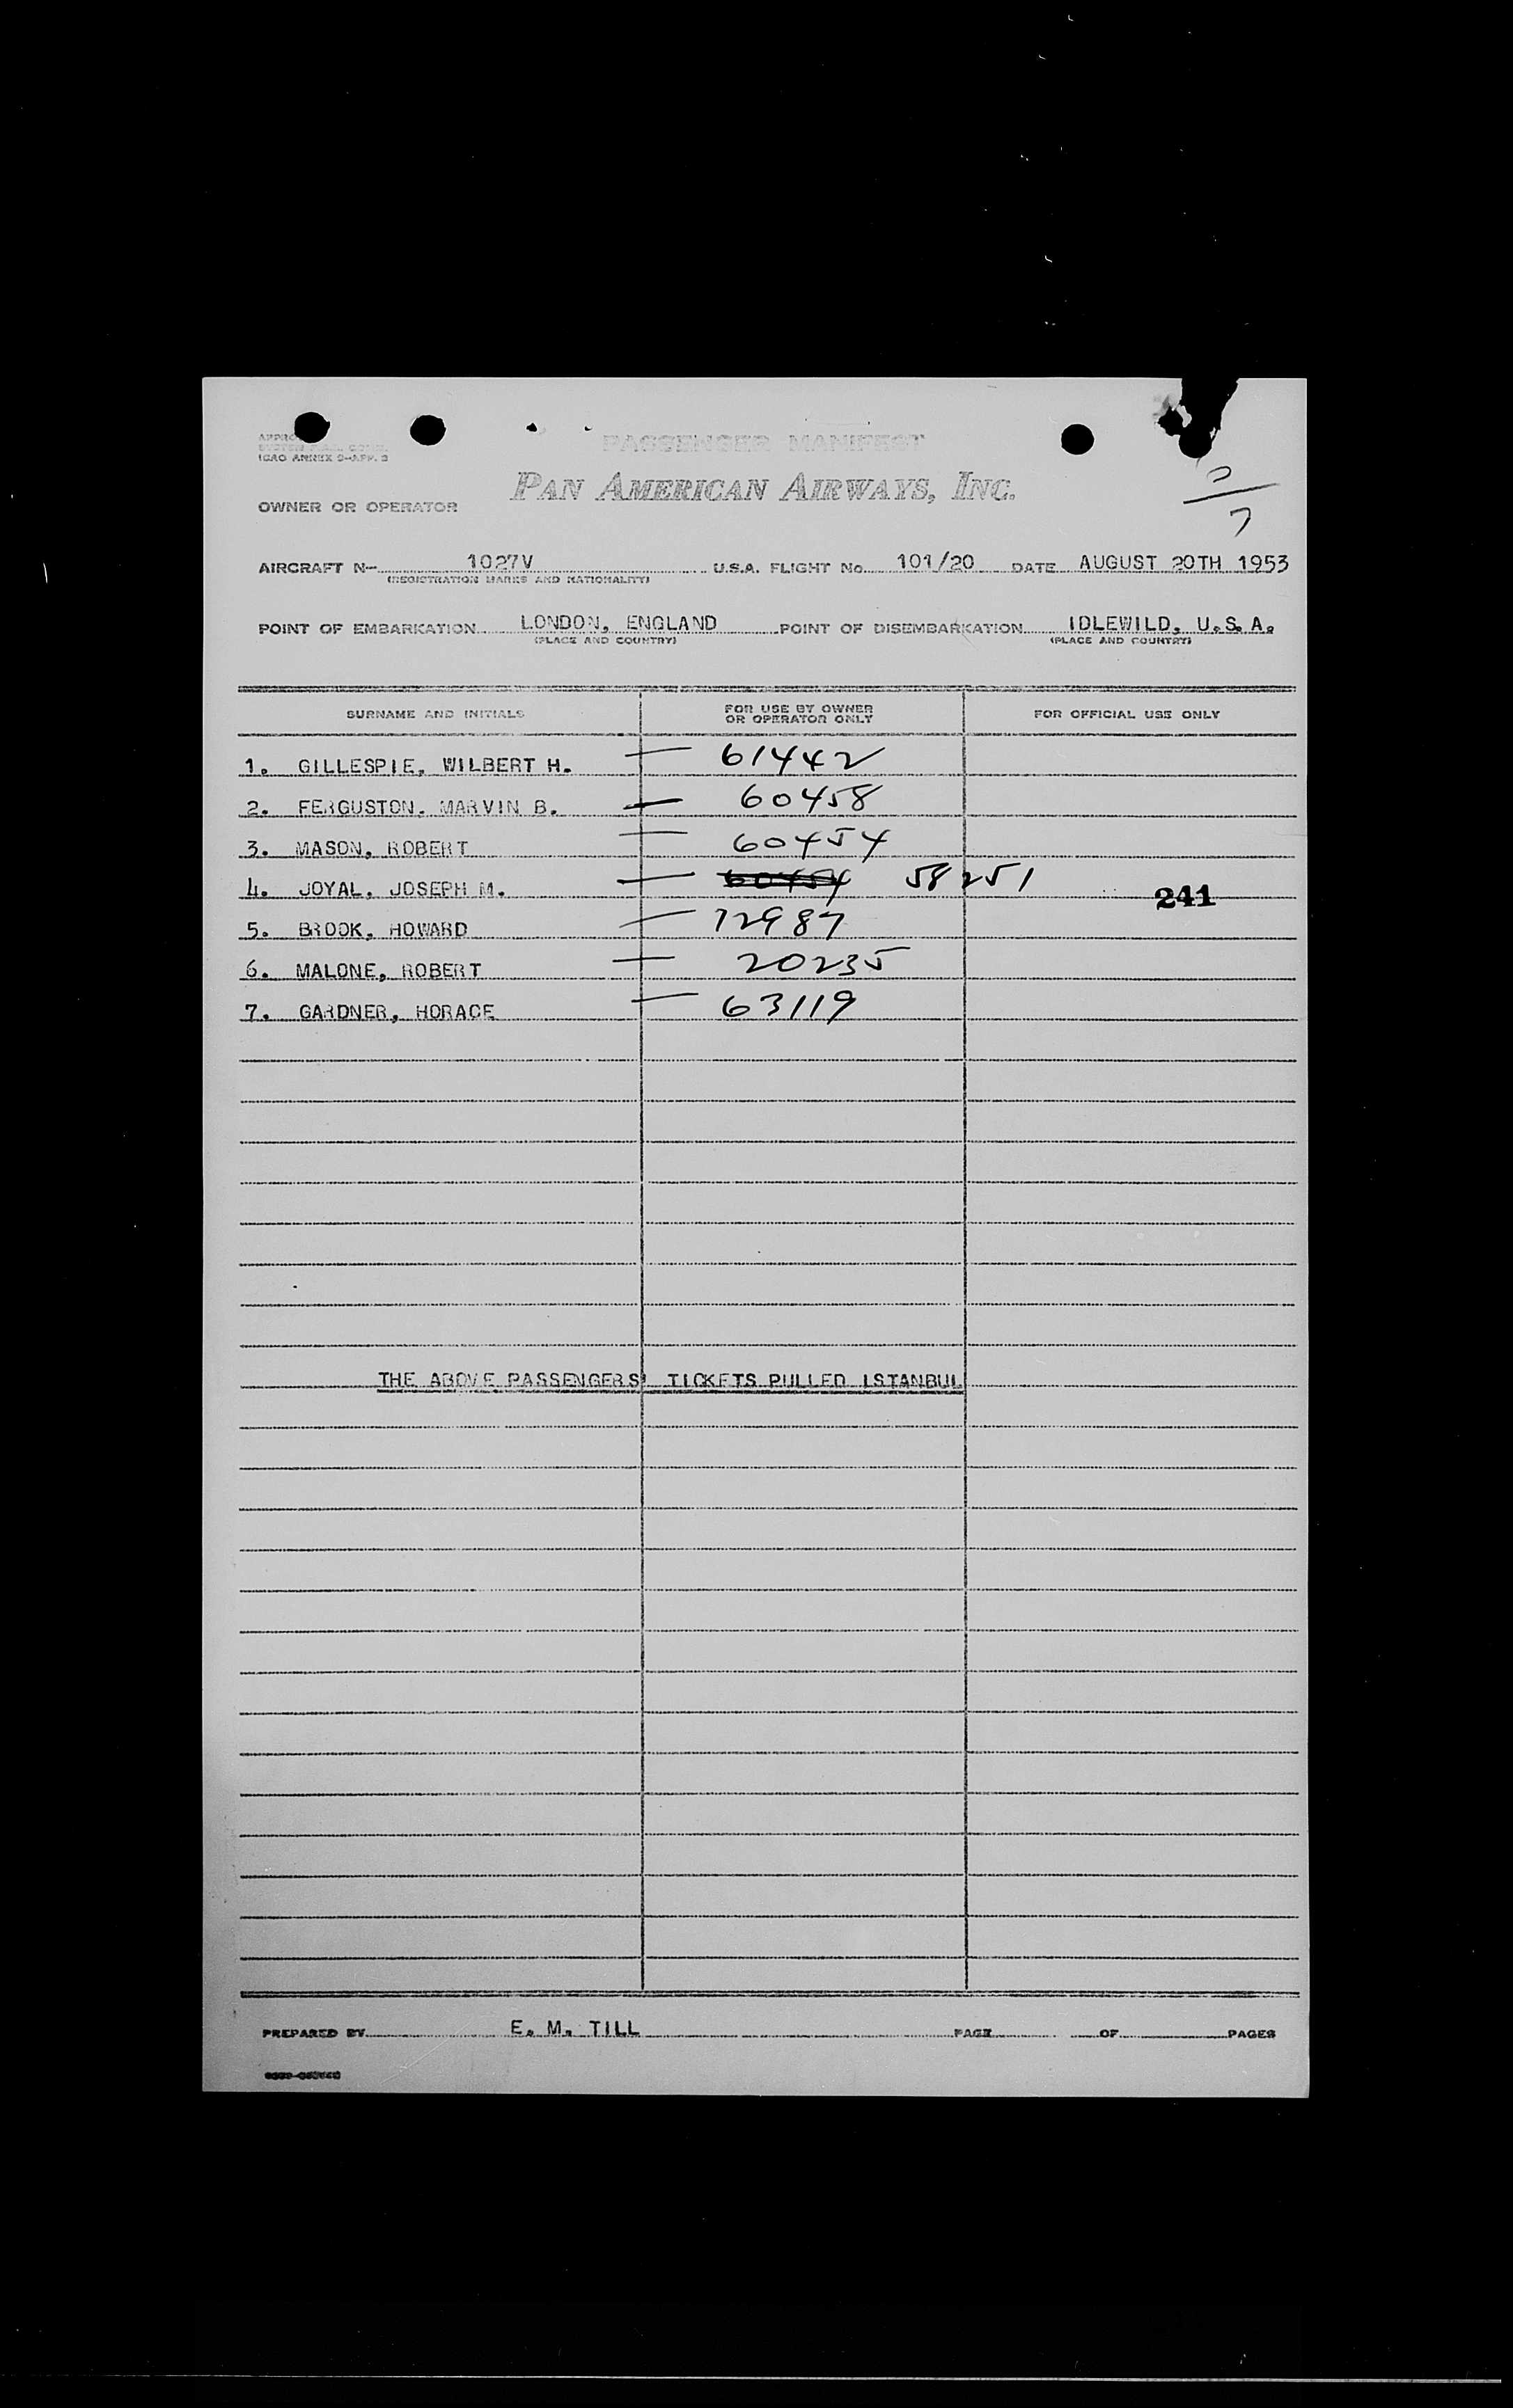 PASSENGER MANIFEST
ICAO ANNEX 9-APP. 3
PAN AMERICAN AIRWAYS, INC.
OWNER OR OPERATOR
7
AIRCRAFT N- 1027V U.S.A. FLIGHT No. 101/20 DATE AUGUST 20TH 1953
(REGISTRATION MARKS AND NATIONALITY)
POINT OF EMBARKATION LONDON, ENGLAND POINT OF DISEMBARKATION IDLEWILD, U.S.A.
(PLACE AND COUNTRY) (PLACE AND COUNTRY)
SURNAME AND INITIALS FOR USE BY OWNER OR OPERATOR ONLY FOR OFFICIAL USE ONLY
1. GILLESPIE, WILBERT H. — 61442
2. FERGUSTON, MARVIN B. — 60458
3. MASON, ROBERT — 60454
4. JOYAL, JOSEPH M. — 60454 58251 241
5. BROOK, HOWARD — 72987
6. MALONE, ROBERT — 20235
7. GARDNER, HORACE — 63119
THE ABOVE PASSENGERS' TICKETS PULLED ISTANBUL
PREPARED BY E. M. TILL PAGE OF PAGES